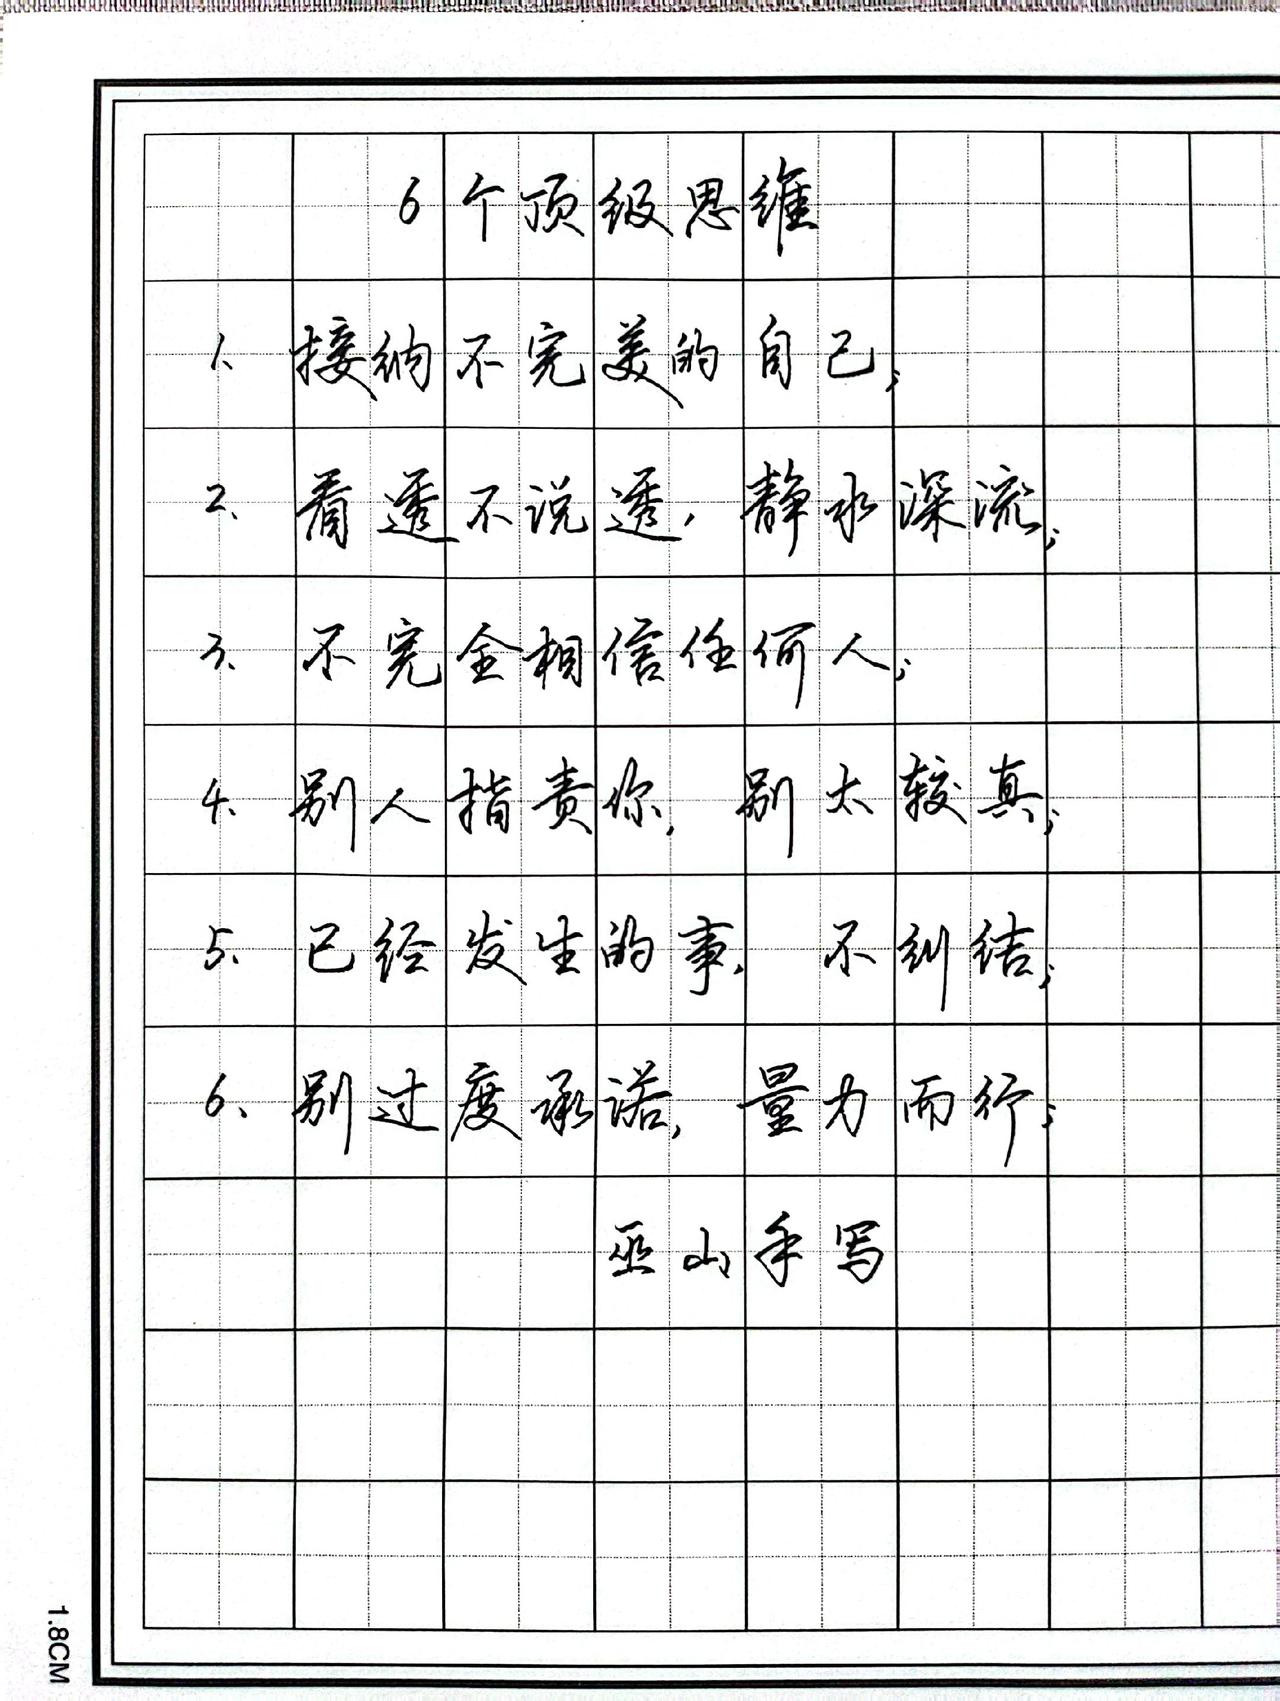 6个顶级思维
1、接纳不完美的自己;
2、看透不说透,静水深流;
3、不完全相信任何人;
4、别人指责你,别太较真;
5、已经发生的事,不纠结;
6、别过度承诺,量力而行;
巫山手写
1.8CM